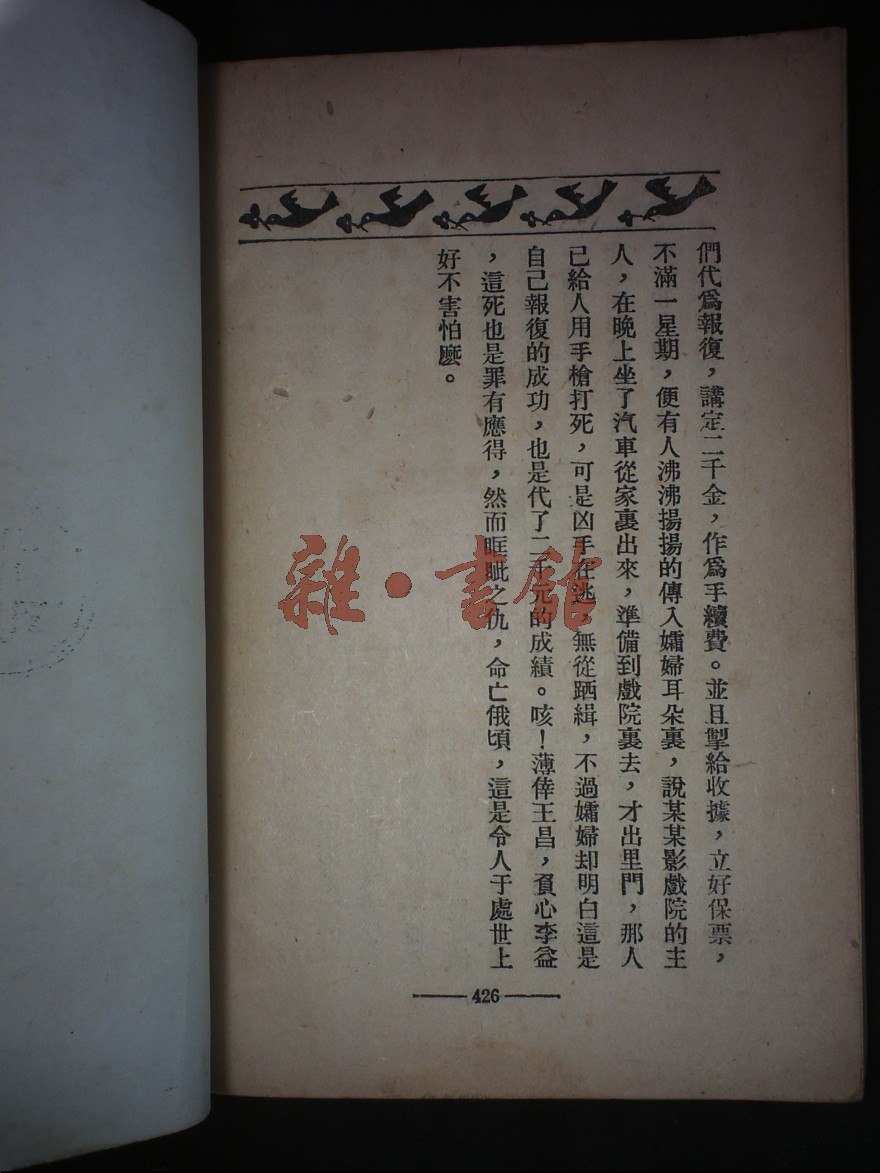 們代爲報復，講定二千金，作爲手續費。並且掣給收據，立好保票，
不滿一星期，便有人沸沸揚揚的傳入孀婦耳朵裏，說某某影戲院的主
人，在晚上坐了汽車從家裏出來，準備到戲院裏去，才出里門，那人
已給人用手槍打死，可是凶手在逃，無從跴緝，不過孀婦却明白這是
自己報復的成功，也是代了二千元的成績。咳！薄倖王昌，負心李益
，這死也是罪有應得，然而眶眦之仇，命亡俄頃，這是令人于處世上
好不害怕麽。
426
雜·書舘